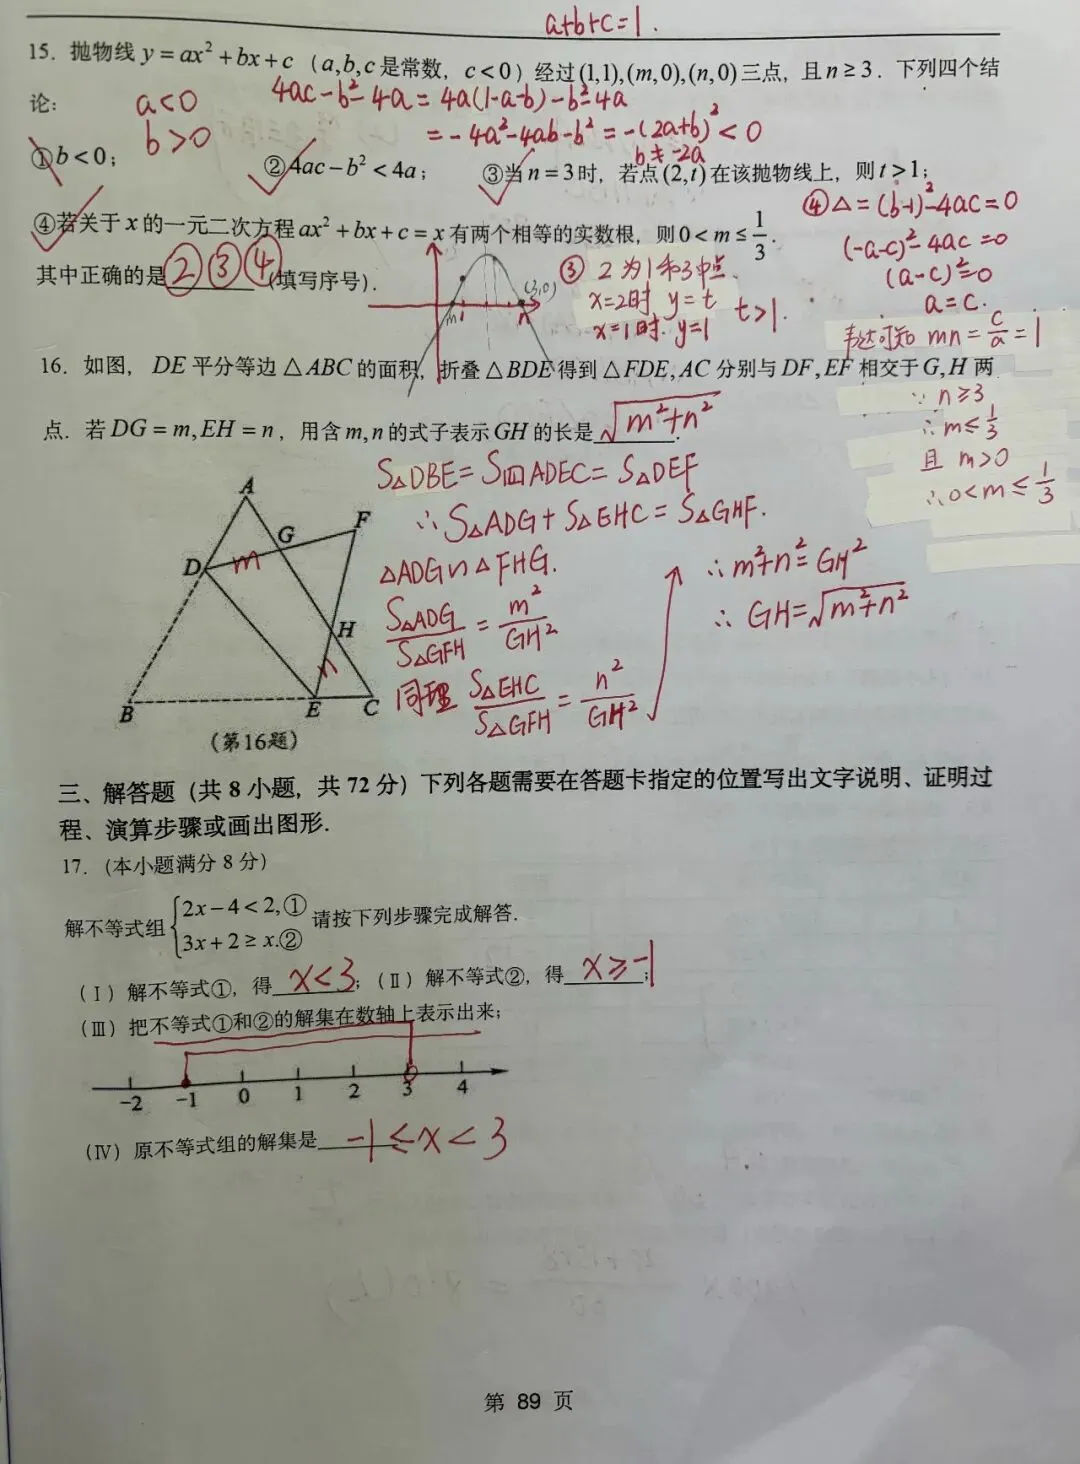 a+b+c=1.
15. 抛物线 y=ax²+bx+c (a,b,c是常数, c<0) 经过(1,1),(m,0),(n,0)三点, 且n≥3. 下列四个结
论:
a<0
b>0
4ac-b²-4a=4a(1-a-b)-b²-4a
=-4a²-4ab-b²=-(2a+b)²<0
b≠-2a
①b<0; ②4ac-b²<4a; ③当n=3时, 若点(2,t)在该抛物线上, 则t>1;
④若关于x的一元二次方程ax²+bx+c=x有两个相等的实数根, 则0<m≤1/3.
其中正确的是②③④(填写序号).
m 1 n (3,0)
③ 2为1和3中点.
x=2时 y=t
x=1时. y=1
t>1.
④△=(b-1)²-4ac=0
(-a-c)²-4ac=0
(a-c)²=0
a=c.
韦达可知 mn=c/a=1
∵ n≥3
∴m≤1/3
且 m>0
∴0<m≤1/3
16. 如图, DE平分等边△ABC的面积, 折叠△BDE得到△FDE,AC分别与DF,EF相交于G,H两
点. 若DG=m,EH=n, 用含m,n的式子表示GH的长是√(m²+n²).
A
F
G
D m
H
n
B E C
(第16题)
S△DBE=S四ADEC=S△DEF
∴S△ADG+S△EHC=S△GHF.
△ADG∽△FHG.
S△ADG/S△GFH=m²/GH²
同理 S△EHC/S△GFH=n²/GH²
∴m²+n²=GH²
∴GH=√(m²+n²)
三、解答题 (共8小题, 共72分) 下列各题需要在答题卡指定的位置写出文字说明、证明过
程、演算步骤或画出图形.
17. (本小题满分8分)
解不等式组{2x-4<2,① 3x+2≥x.② 请按下列步骤完成解答.
(Ⅰ) 解不等式①, 得 x<3; (Ⅱ) 解不等式②, 得 x≥-1;
(Ⅲ) 把不等式①和②的解集在数轴上表示出来;
-2 -1 0 1 2 3 4
(Ⅳ) 原不等式组的解集是 -1≤x<3
第 89 页